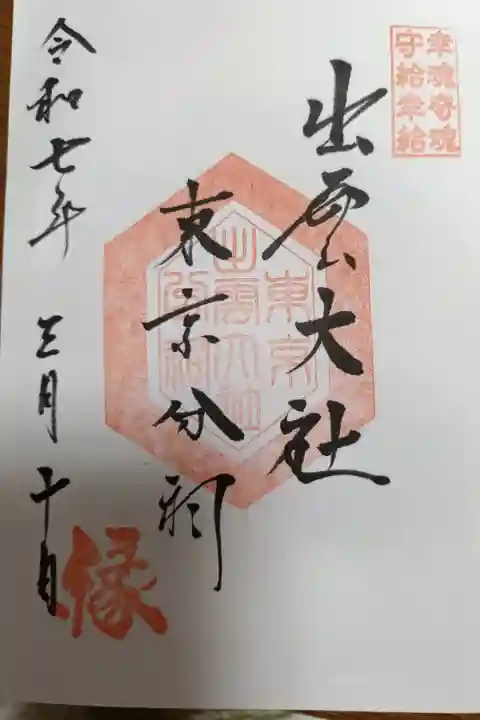 幸魂奇魂
守給幸給
出雲大社
東京分祠
東京
出雲大社
分祠
令和七年 三月十日
縁